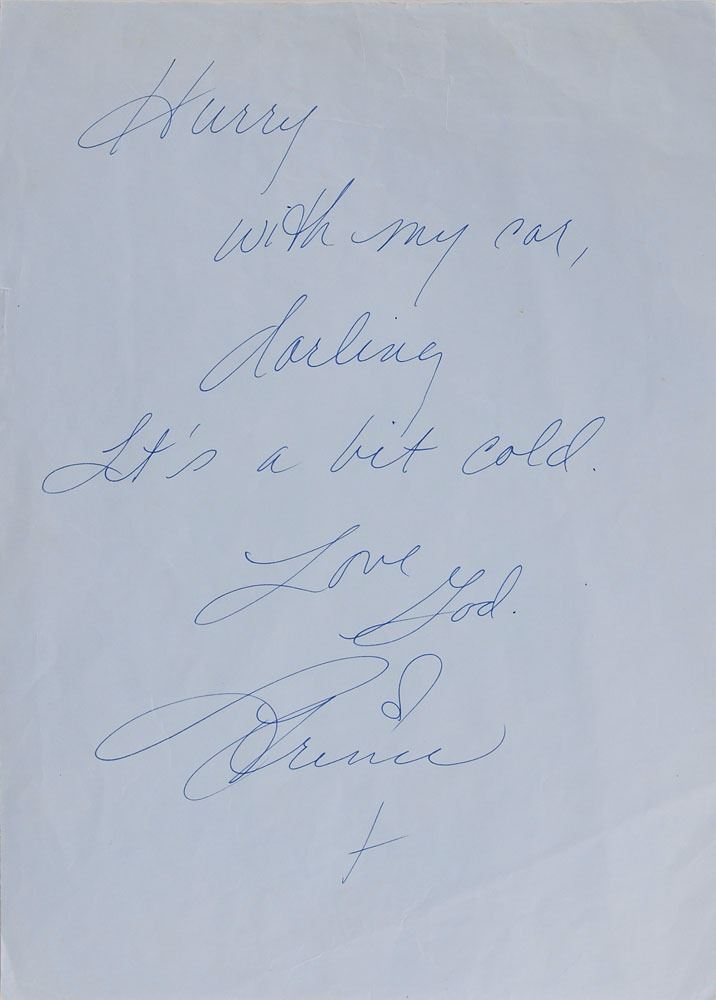 Hurry
with my car,
darling
It's a bit cold.
Love God.
Prince